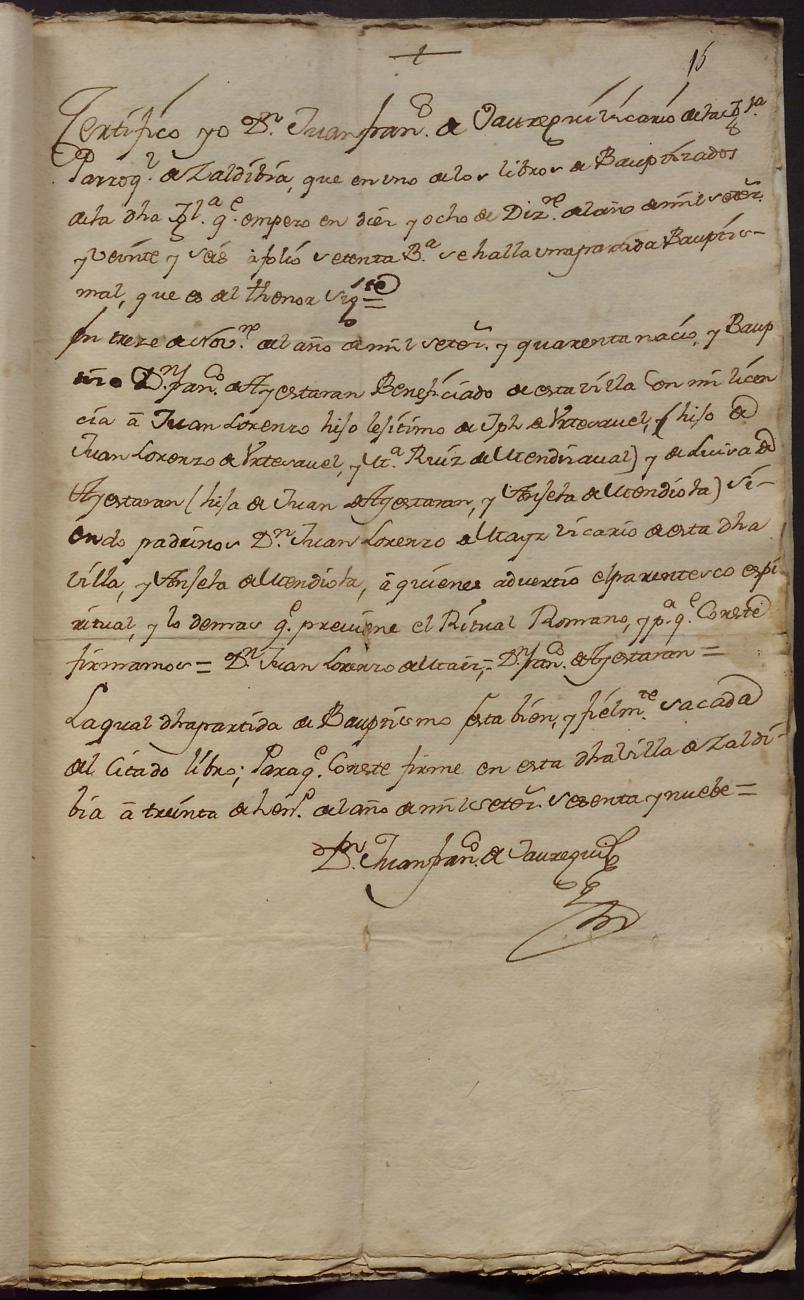 †
15
Certifico yo Dn. Juan franco. de Jauregui Vicario de la Yglª.
Parroql. de Zaldibia, que en uno de los libros de Bauptizados
de la dha Yglª. qe. empezo en diez y ocho de Dizre. del año de mil setezs.
y veinte y seis à folio setenta Bª. se halla una partida Bauptis-
mal, que es del thenor sigte=
En treze de Novre. del año de mil setezs. y quarenta nacio, y Baup
tizo Dn. franco. de Ayestaran Beneficiado de esta villa con mi licen
cia à Juan Lorenzo hijo lejitimo de Jph de Urtesauel, (hijo de
Juan Lorenzo de Urtesauel, y Mª. Ruiz de Mendizaual) y de Luisa de
Ayestaran (hija de Juan de Ayestaran, y Josefa de Mendiola) si-
endo padrinos Dn. Juan Lorenzo de Mayz Vicario de esta dha
villa, y Josefa de Mendiola, à quienes advertio el parentesco espi
ritual, y lo demas qe. previene el Ritual Romano, y pª. qe. Conste
firmamos = Dn. Juan Lorenzo de Maiz,= Dn. franco. de Ayestaran =
La qual dha partida de Bauptismo esta bien, y fielmte. sacada
del Citado libro; Para qe. Conste firme en esta dha villa de Zaldi-
bia à treinta de Enº. del año de mil setezs. sesenta y nuebe =
Dn. Juan franco. de Jauregui